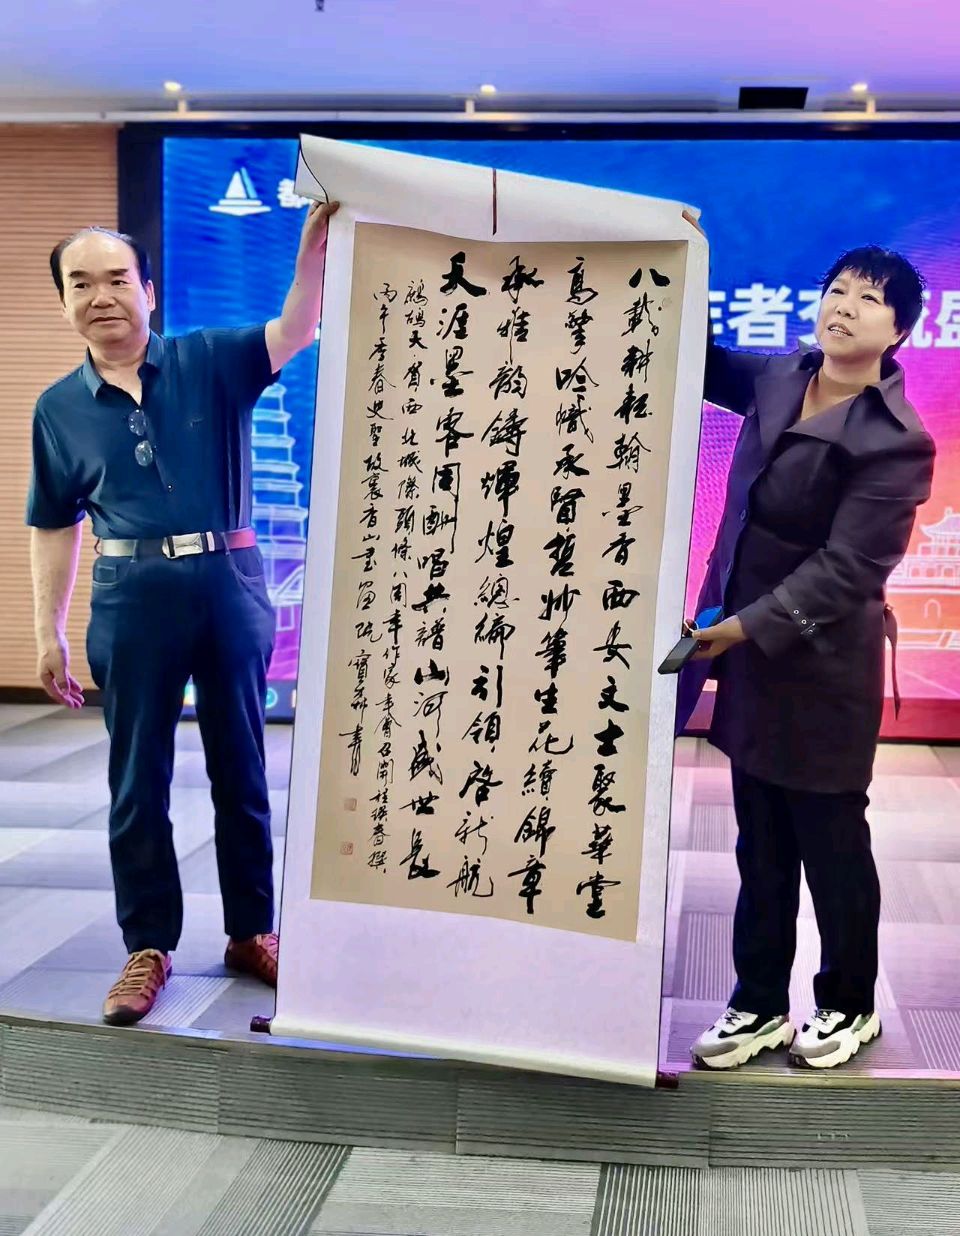 都
作者交流盛
八載耕耘翰墨香西安文士聚華堂
高擎吟幟承賢哲妙筆生花續錦章
承雅韻鑄輝煌總編引領啓新航
天涯墨客同酬唱共譜山河盛世長
鷓鴣天·賀西北城際頭條八周年作家年會召開程瑛春撰
丙午季春史聖故裏香山書畫院寶森書